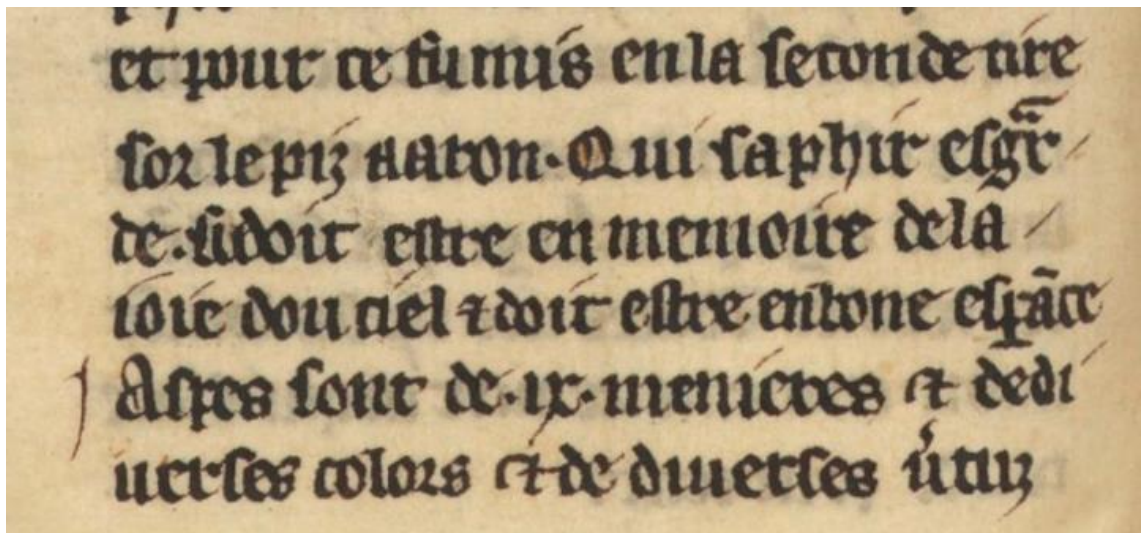 et pour ce fu mis en la seconde tire
sor le piz aaron. Qui saphir esgr̃
de. si doit estre en memoire de la
ioie dou ciel ⁊ doit estre en bone esꝑãce
Aspes sont de .ix. menieres ⁊ de di
uerses colors ⁊ de diuerses ùtuz